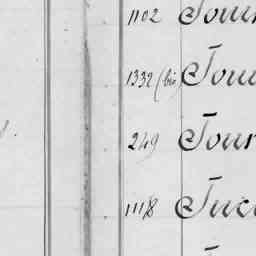 1102 Tour
1332 (bis) Tou
249 Tour
1118 Tuc